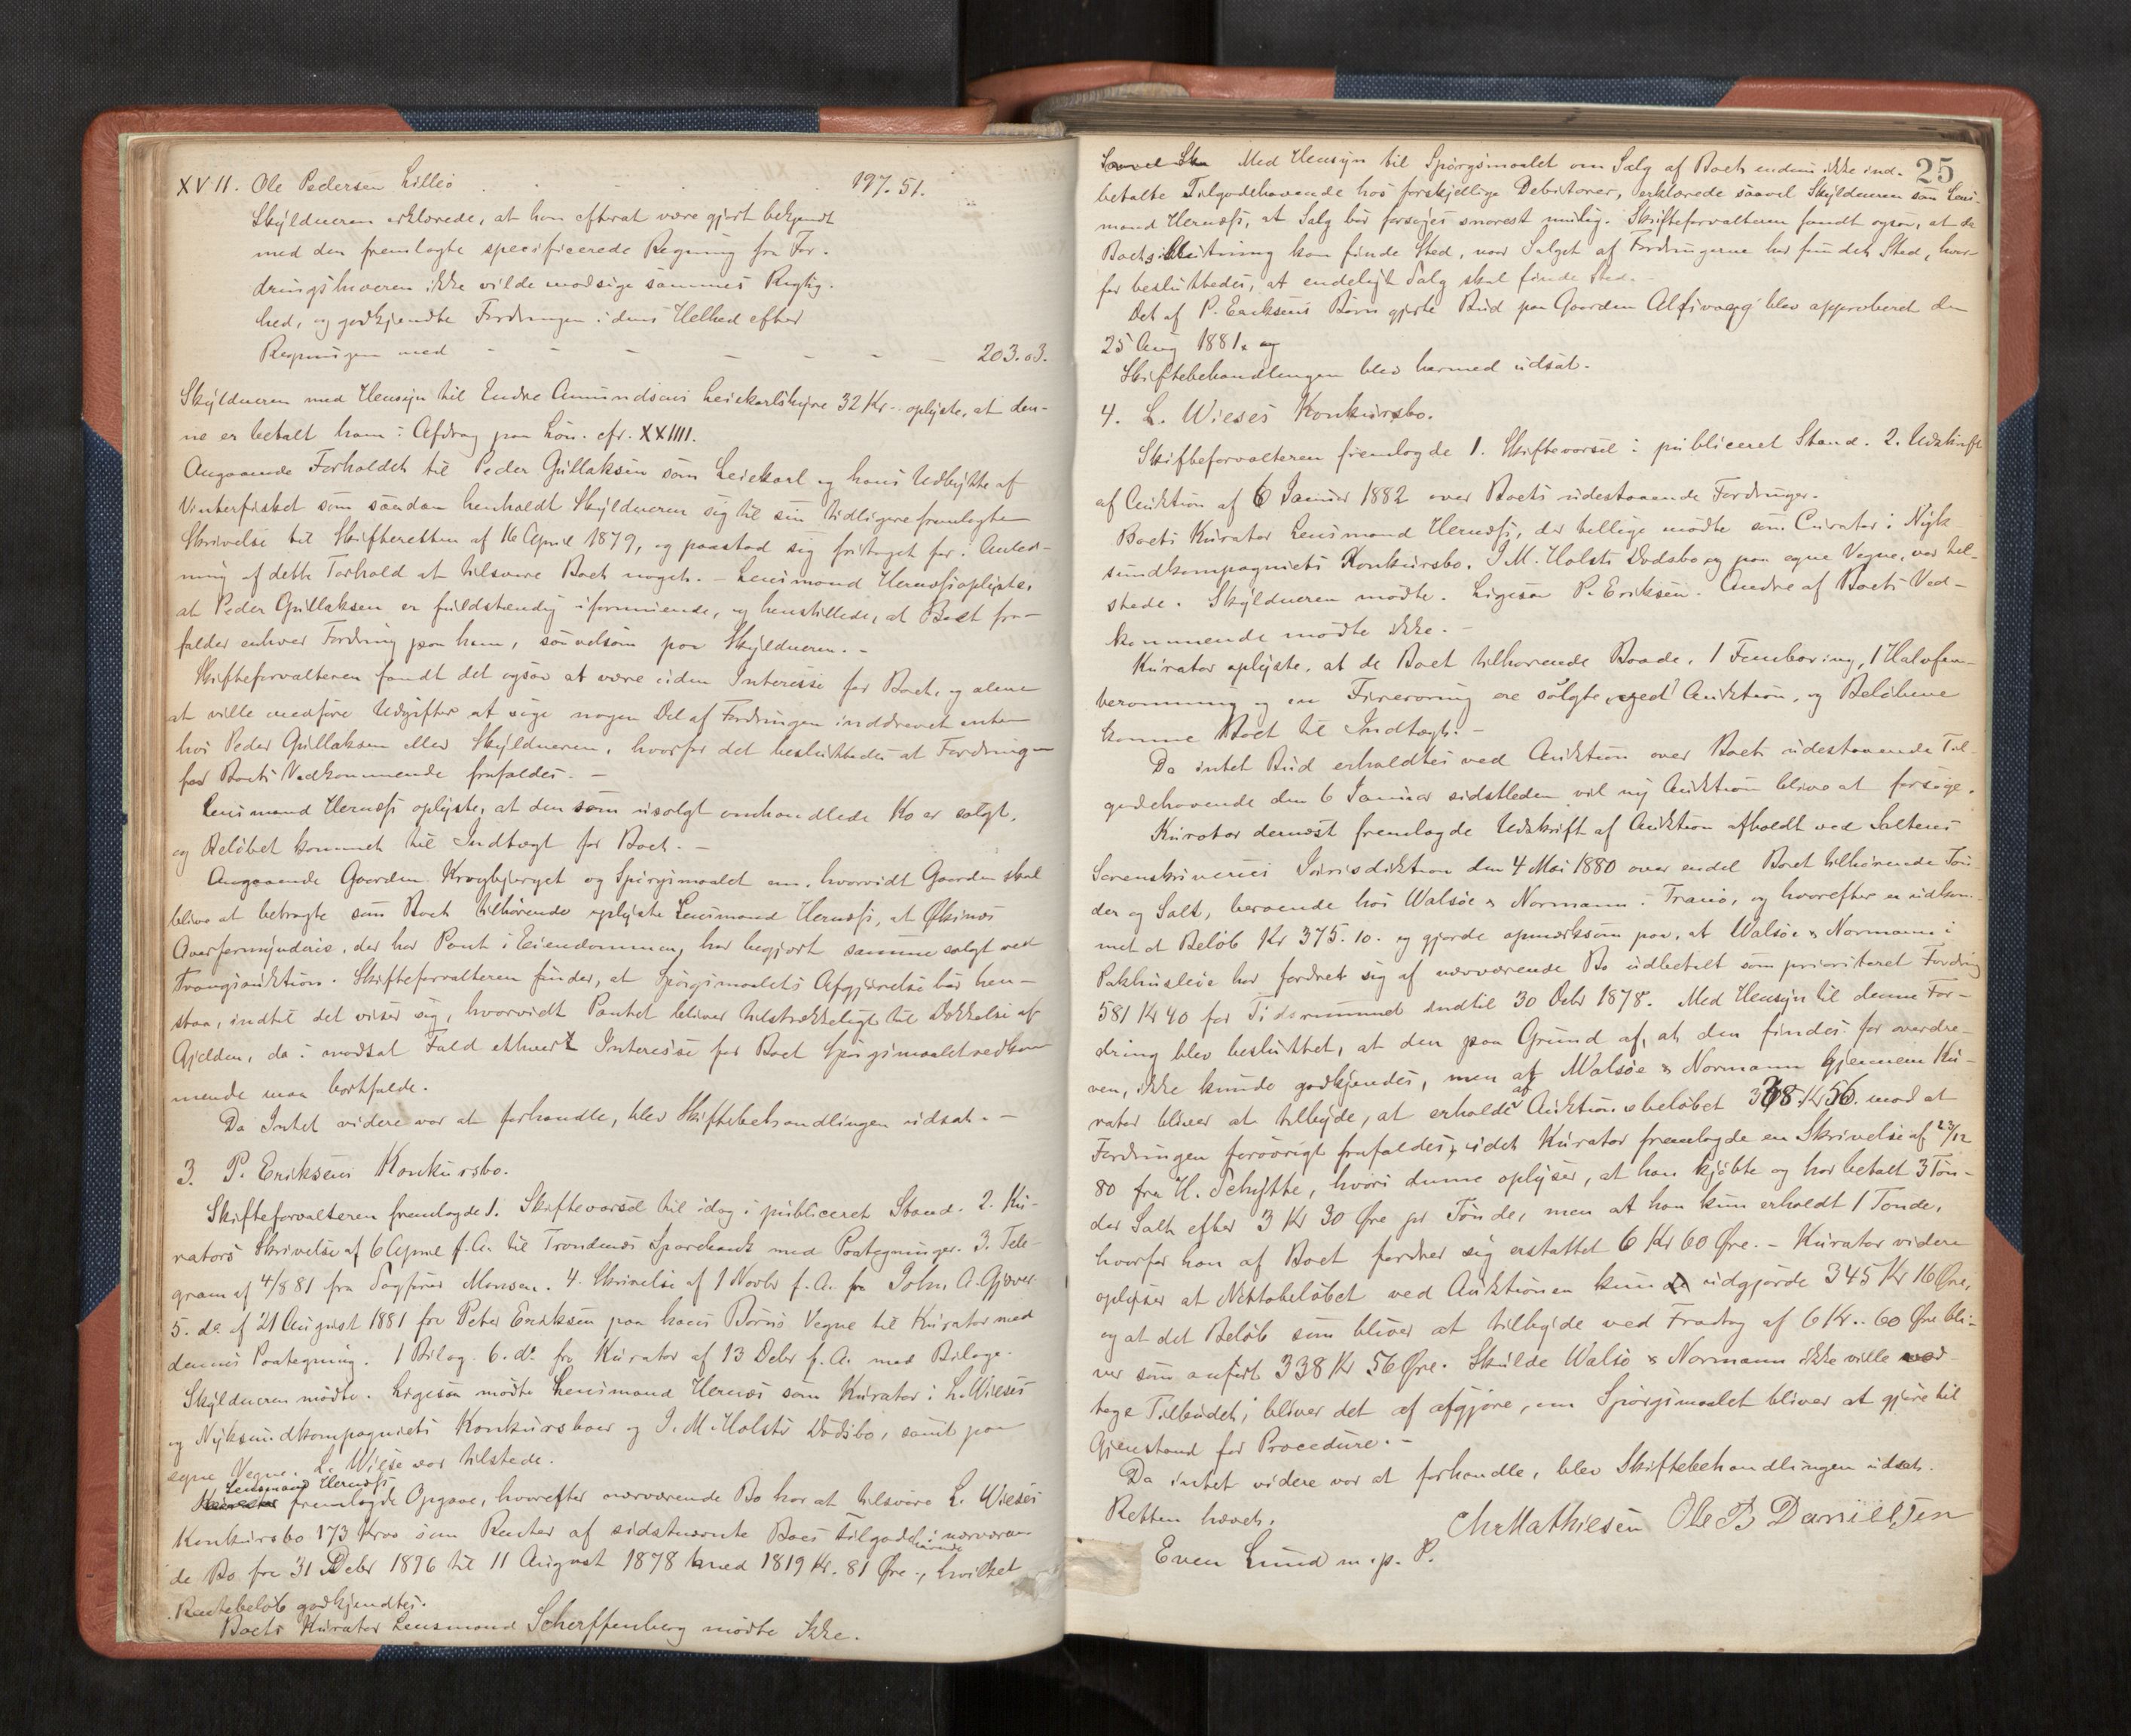 XVII. Ole Pedersen Lilleø . . . . . 197.51.
Skyldneren erklærede, at han efterat være gjort bekjendt
med den fremlagte specificerede Regning fra For-
dringshaveren ikke vilde modsige sammes Rigtig-
hed, og godkjendte Fordringen i dens Helhed efter
Regningen med - - - - - - - 203.03.
Skyldneren med Hensyn til Endre Amundsens Leiekarlshyre 32 Kr. oplyste, at den-
ne er betalt ham i Afdrag paa Løn. cfr. XXIIII.
Angaaende Forholdet til Peder Gullaksen som Leiekarl og hans Udbytte af
Vinterfisket som saadan henholdt Skyldneren sig til sin tidligere fremlagte
Skrivelse til Skifteretten af 16 April 1879, og paastod sig fritaget for i Anled-
ning af dette Forhold at tilsvare Boet noget. - Lensmand Hernæss oplyste,
at Peder Gullaksen er fuldstændig uformuende, og henstillede, at Boet fra-
falder enhver Fordring paa ham, saavelsom paa Skyldneren. -
Skifteforvalteren fandt det ogsaa at være uden Interesse for Boet, og alene
at ville medføre Udgifter at søge nogen Del af Fordringen inddrevet enten
hos Peder Gullaksen eller Skyldneren, hvorfor det besluttedes at Fordringen
for Boets Vedkommende frafaldes. -
Lensmand Hernæss oplyste, at den som usolgt omhandlede Ko er solgt,
og Beløbet kommet til Indtægt for Boet. -
Angaaende Gaarden Krogbjerget og Spørgsmaalet om, hvorvidt Gaarden skal
blive at betragte som Boet tilhørende oplyste Lensmand Hernæss, at Øksnæs
Overformynderie, der har Pant i Eiendommen, har begjært samme solgt ved
Tvangsauktion. Skifteforvalteren finder, at Spørgsmaalets Afgjørelse bør hen-
staa, indtil det viser sig, hvorvidt Pantet bliver tilstrækkeligt til Dækkelse af
Gjælden, da i modsat Fald ethvert Interesse for Boet Spørgsmaalet vedkom-
mende maa bortfalde.
Da Intet videre var at forhandle, blev Skiftebehandlingen udsat. -
3. P. Eriksens Konkursbo.
Skifteforvalteren fremlagde 1. Skiftevarsel til idag i publiceret Stand. 2. Ku-
rators Skrivelse af 6 April f. A. til Trondenæs Sparebank med Paategninger. 3. Tele-
gram af 4/8 81 fra Sagfører Monsen. 4. Skrivelse af 1 Novbr f. A. fra John A. Gjæver.
5. do af 21 August 1881 fra Peter Eriksen paa hans Børns Vegne til Kurator med
dennes Paategning. 1 Bilag. 6. do fra Kurator af 13 Debr f. A. med Bilage.
Skyldneren mødte. Ligesaa mødte Lensmand Hernæs som Kurator i L. Wieses
og Nyksundkompagniets Konkursboer og J. M. Holsts Dødsbo, samt paa
egne Vegne. L. Wiese var tilstede.
Lensmand Hernæss
Kurator fremlagde Opgave, hvorefter nærværende Bo har at tilsvare L. Wieses
Konkursbo 173 Kroner som Renter af sidstnævnte Boes Tilgodehavende i nærværen-
de Bo fra 31 Debr 1876 til 11 August 1878 med 1819 Kr. 81 Øre, hvilket
Rentebeløb godkjendtes.
Boets Kurator Lensmand Scherffenberg mødte ikke.
25
Med Hensyn til Spørgsmaalet om Salg af Boets endnu ikke ind-
betalte Tilgodehavende hos forskjellige Debitorer, erklærede saavel Skyldneren som Lens-
mand Hernæss, at Salg bør forsøges snarest mulig. Skifteforvalteren fandt ogsaa, at da
Boets Slutning kan finde Sted, naar Salget af Fordringerne har fundet Sted, hvor-
for besluttedes, at endeligt Salg skal finde Sted. -
Det af P. Eriksens Børn gjorte Bud paa Gaarden Alfsvaag blev approberet den
25 Aug 1881. og
Skiftebehandlingen blev hermed udsat.
4. L. Wieses Konkursbo.
Skifteforvalteren fremlagde 1. Skiftevarsel i publiceret Stand. 2. Udskrift
af Auktion af 6 Januar 1882 over Boets udestaaende Fordringer.
Boets Kurator Lensmand Hernæss, der tillige mødte som Curator i Nyk-
sundkompagniets Konkursbo, J. M. Holsts Dødsbo og paa egne Vegne, var til-
stede. Skyldneren mødte. Ligesaa P. Eriksen. Andre af Boets Ved-
kommende mødte ikke. -
Kurator oplyste, at de Boet tilhørende Baade, 1 Fembøring, 1 Halvfem-
beromning og en Firerøring ere solgte ved Auktion, og Beløbene
komme Boet til Indtægt. -
Da intet Bud erholdtes ved Auktion over Boets udestaaende Til-
godehavende den 6 Januar sidstleden vil ny Auktion blive at forsøge.
Kurator dernæst fremlagde Udskrift af Auktion afholdt ved Saltens
Sorenskriveries Jurisdiktion den 4 Mai 1880 over endel Boet tilhørende Tøn-
der og Salt, beroende hos Walsøe & Normann i Tranø, og hvorefter er udkom-
met et Beløb Kr 375.10. og gjorde opmærksom paa, at Walsøe & Normann i
Pakhusleie har fordret sig af nærværende Bo udbetalt som prioriteret Fordring
581 Kr 40 for Tidsrummet indtil 30 Debr 1878. Med Hensyn til denne For-
dring blev besluttet, at den paa Grund af, at den findes for overdre-
ven, ikke kunde godkjendes, men at Walsøe & Normann gjennem Ku-
rator bliver at tilbyde, at erholde af Auktionsbeløbet 338 Kr 56. mod at
Fordringen forøvrigt frafaldes, idet Kurator fremlagde en Skrivelse af 23/12
80 fra H. Schytte, hvori denne oplyser, at han kjøbte og har betalt 3 Tøn-
der Salt efter 3 Kr 30 Øre pr Tønde, men at han kun erholdt 1 Tønde,
hvorfor han af Boet fordrer sig erstattet 6 Kr 60 Øre. - Kurator videre
oplyser at Nettobeløbet ved Auktionen kun udgjorde 345 Kr 16 Øre,
og at det Beløb som bliver at tilbyde ved Fradrag af 6 Kr. 60 Øre bli-
ver som anført 338 Kr 56 Øre. Skulde Walsø & Normann ikke ville mod-
tage Tilbudet, bliver det at afgjøre, om Spørgsmaalet bliver at gjøre til
Gjenstand for Procedure. -
Da intet videre var at forhandle, blev Skiftebehandlingen udsat.
Retten hævet.
Chr Mathiesen Ole B Danielsen
Even Lund m. p. P.